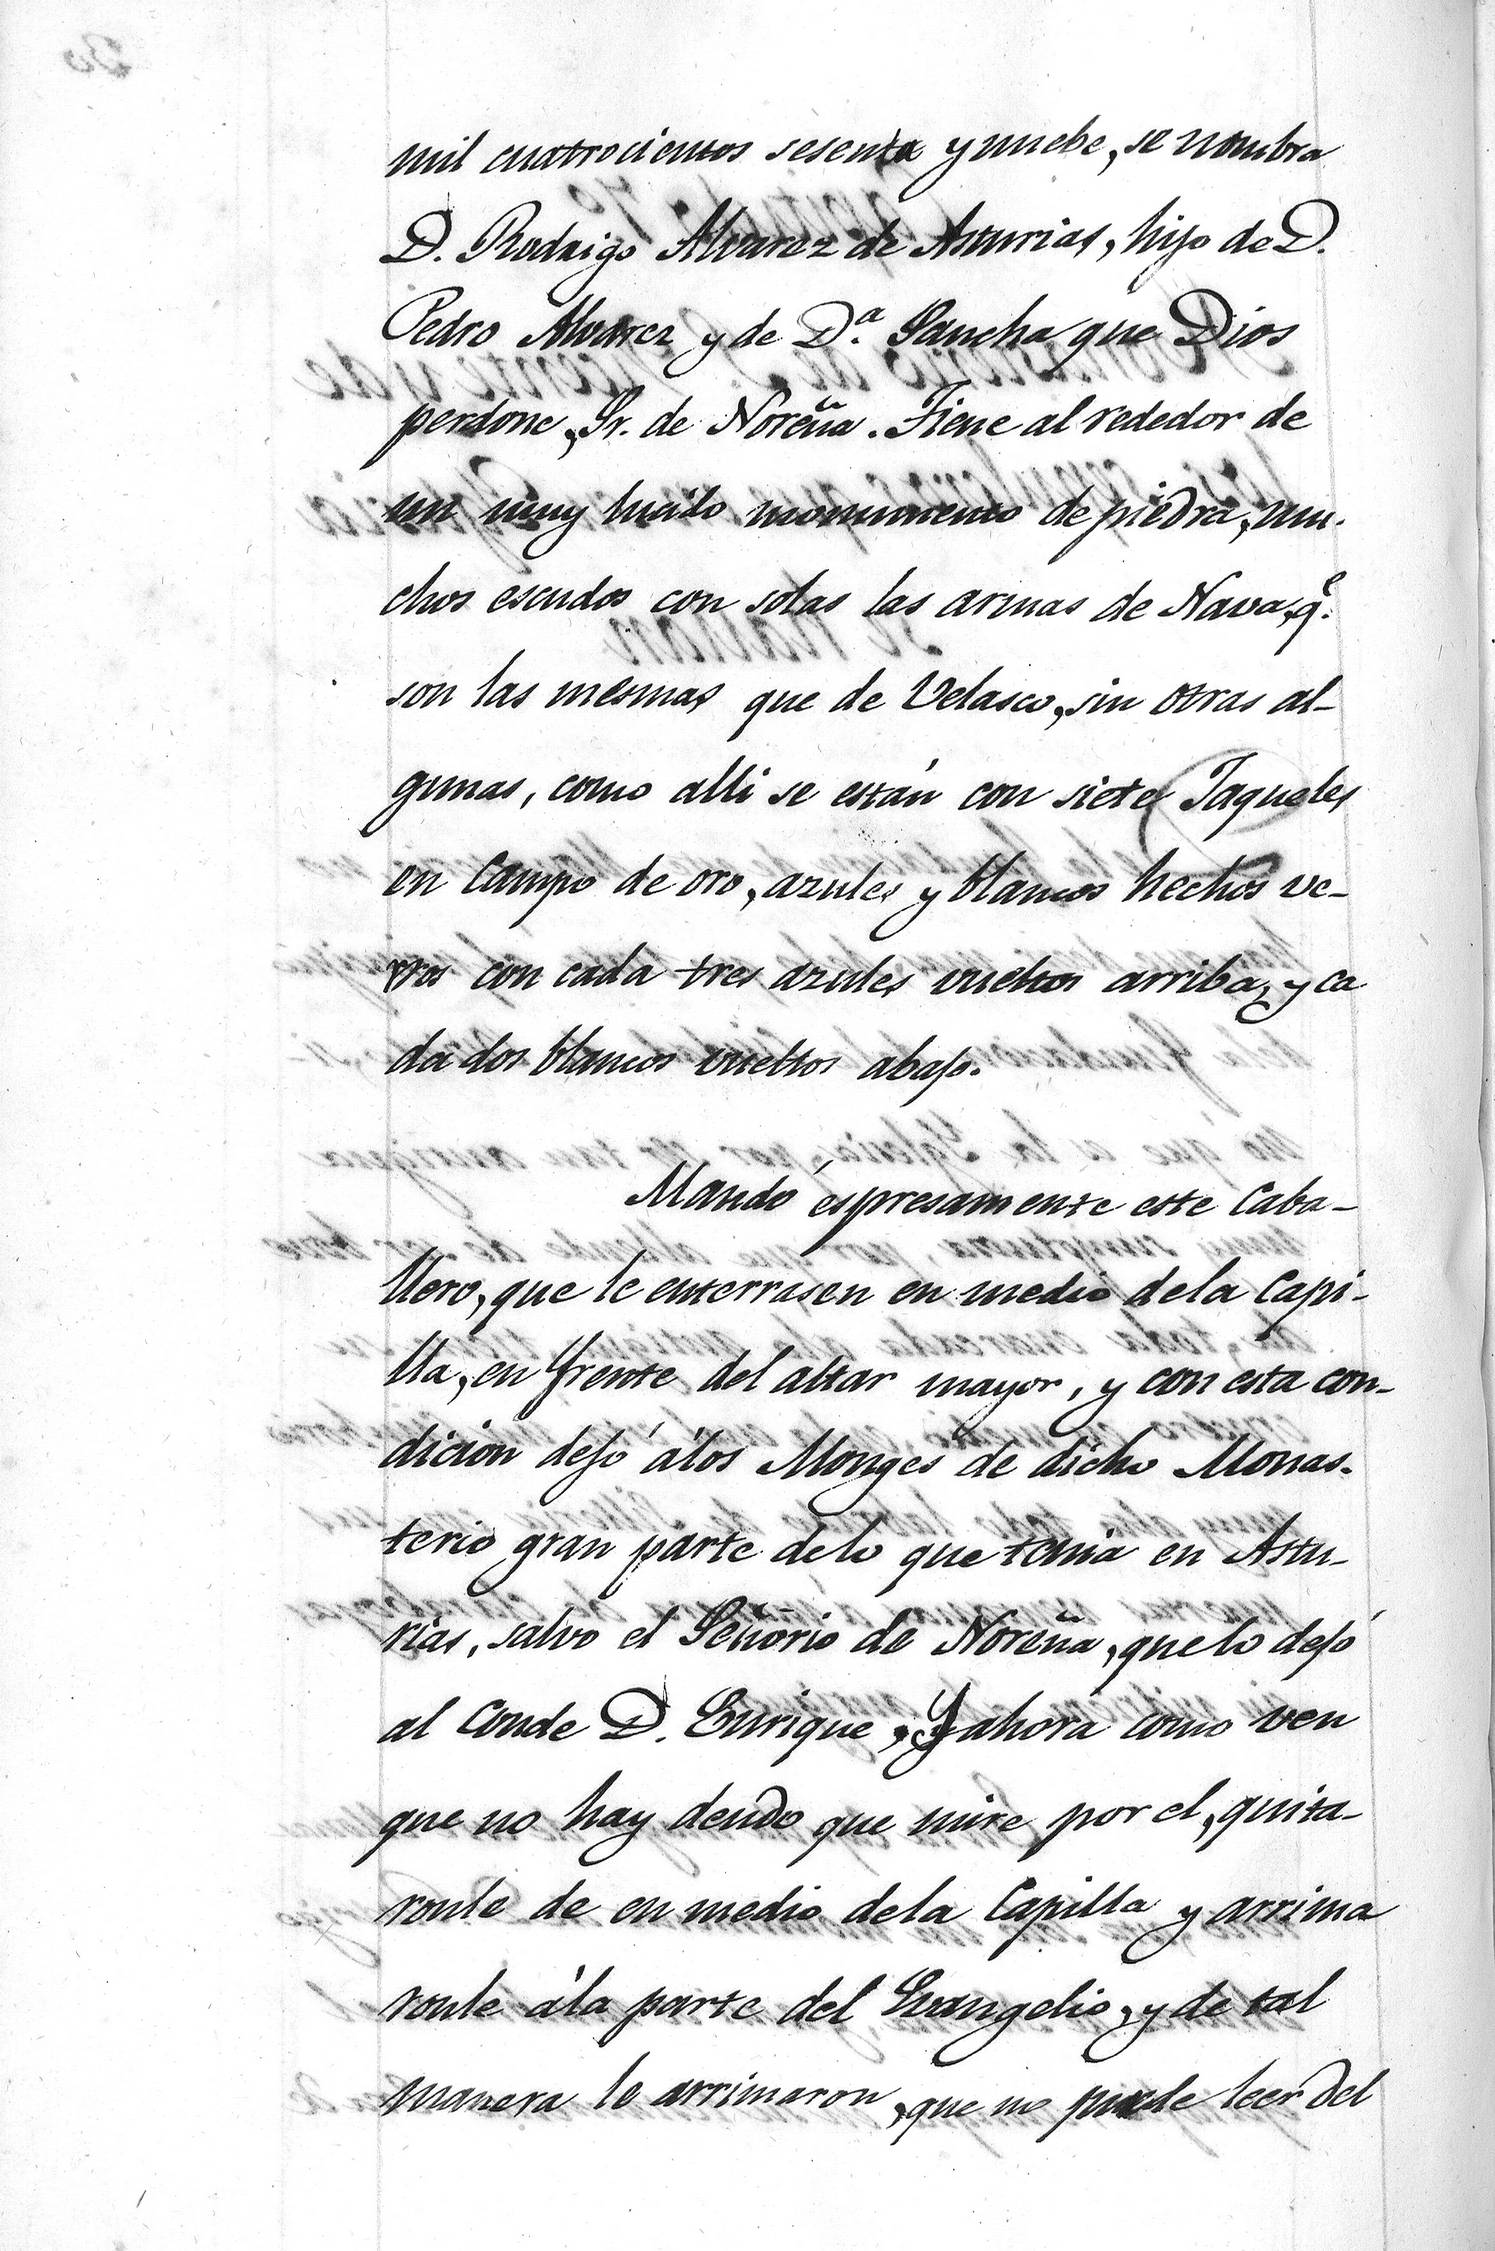 mil cuatrocientos sesenta y nuebe, se nombra
D. Rodrigo Alvarez de Asturias, hijo de D.
Pedro Alvarez y de D.ª Sancha que Dios
perdone, Sr. de Noreña. Tiene al rededor de
un muy lucido monumento de piedra, mu-
chos escudos con solas las armas de Nava, q.e
son las mesmas que de Velasco, sin otras al-
gunas, como alli se están con siete Jaqueles
en Campo de oro, azules y blancos hechos ve-
rros con cada tres azules vueltos arriba, y ca
da dos blancos vueltos abajo.
Mandó espresamente este Caba-
llero, que le enterrasen en medio dela Capi-
lla, en frente del altar mayor, y con esta con-
dicion dejó álos Monges de dicho Monas-
terio gran parte delo que tenia en Astu-
rias, salvo el Señorio de Noreña, que lo dejó
al Conde D. Enrique, Y ahora como ven
que no hay deudo que mire por el, quita-
ronle de en medio dela Capilla y arrima
ronle ála parte del Evangelio, y de tal
manera le arrimaron, que no puede leer del